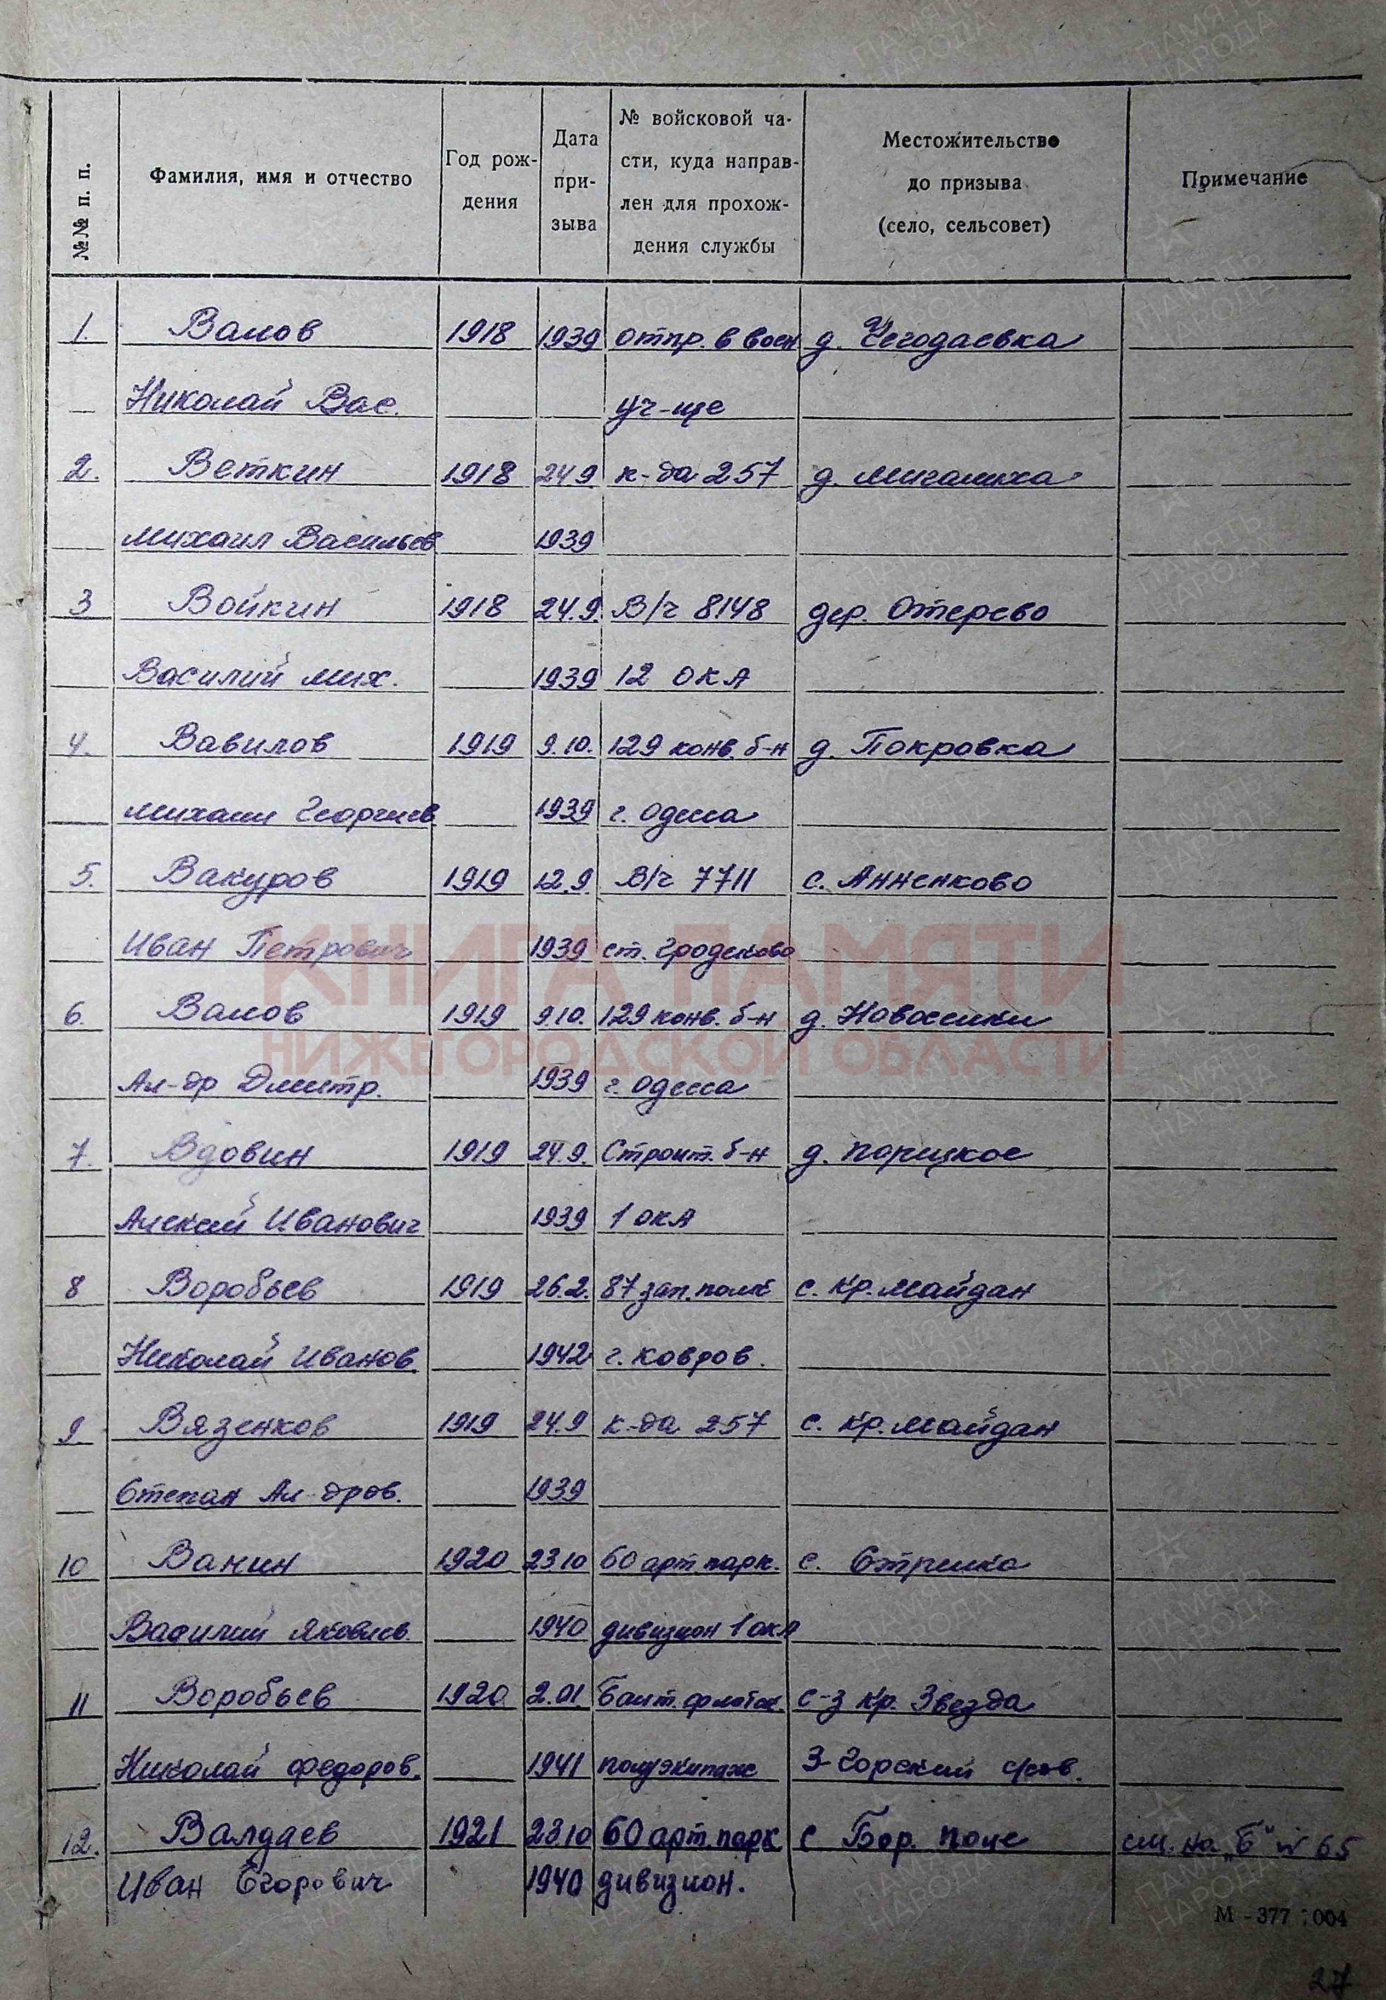 №№ п. п. Фамилия, имя и отчество Год рож-дения Дата при-зыва № войсковой ча-сти, куда направ-лен для прохож-дения службы Местожительство до призыва (село, сельсовет) Примечание
1. Валов 1918 1939 отпр. в воен д. Чегодаевка
Николай Вас. уч-ще
2. Веткин 1918 24 9 к-да 257 д. Мигалиха
Михаил Васильев 1939
3 Войкин 1918 24.9. В/ч 8148 дер. Отерево
Василий Мих. 1939 12 ОКА
4. Вавилов 1919 9.10. 129 конв. б-н д. Покровка
Михаил Георгиев. 1939 г. Одесса
5. Вакуров 1919 12.9 В/ч 7711 с. Анненково
Иван Петрович 1939 ст. Гродеково
КНИГА ПАМЯТИ
6. Валов 1919 9.10. 129 конв. б-н д. Новоселки
НИЖЕГОРОДСКОЙ ОБЛАСТИ
Ал-др Дмитр. 1939 г. Одесса
7. Вдовин 1919 24.9. Строит. б-н д. Порецкое
Алексей Иванович 1939 1 ОКА
8 Воробьев 1919 26.2. 87 зап. полк с. Кр. Майдан
Николай Иванов. 1942 г. Ковров.
9 Вязенков 1919 24.9 к-да 257 с. Кр. Майдан
Степан Ал-дров. 1939
10 Ванин 1920 23 10 60 арт. парк. с. Стрелка
Василий Яковлев. 1940 дивизион 1 ОКА
11 Воробьев 1920 2.01. Балт. флотск. с-з Кр. Звезда
Николай Федоров. 1941 полуэкипаж З-Горский с/сов.
12. Валдаев 1921 23 10 60 арт. парк с Бор. поле см. на „Б" № 65
Иван Егорович 1940 дивизион.
М-377 004
27
ПАМЯТЬ НАРОДА